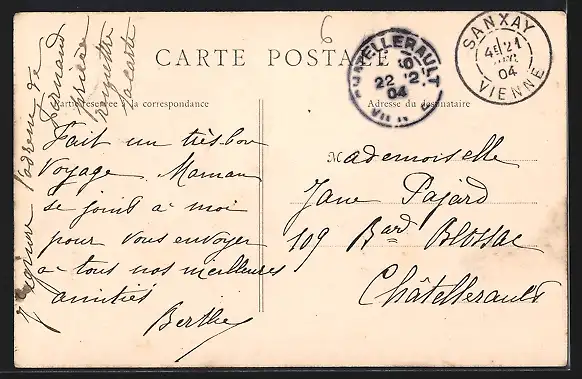 6
CARTE POSTALE
Partie réservée à la correspondance
Adresse du destinataire
SANXAY
4E/21
04
VIENNE
CHATELLERAULT
22
04
Fait un très bon
voyage Maman
se joint à moi
pour vous envoyer
à tous nos meilleures
amitiés
Berthe
Mademoiselle
Jane Pajard
109 Bard Blossac
Châtellerault
l'adresse de
Fernand